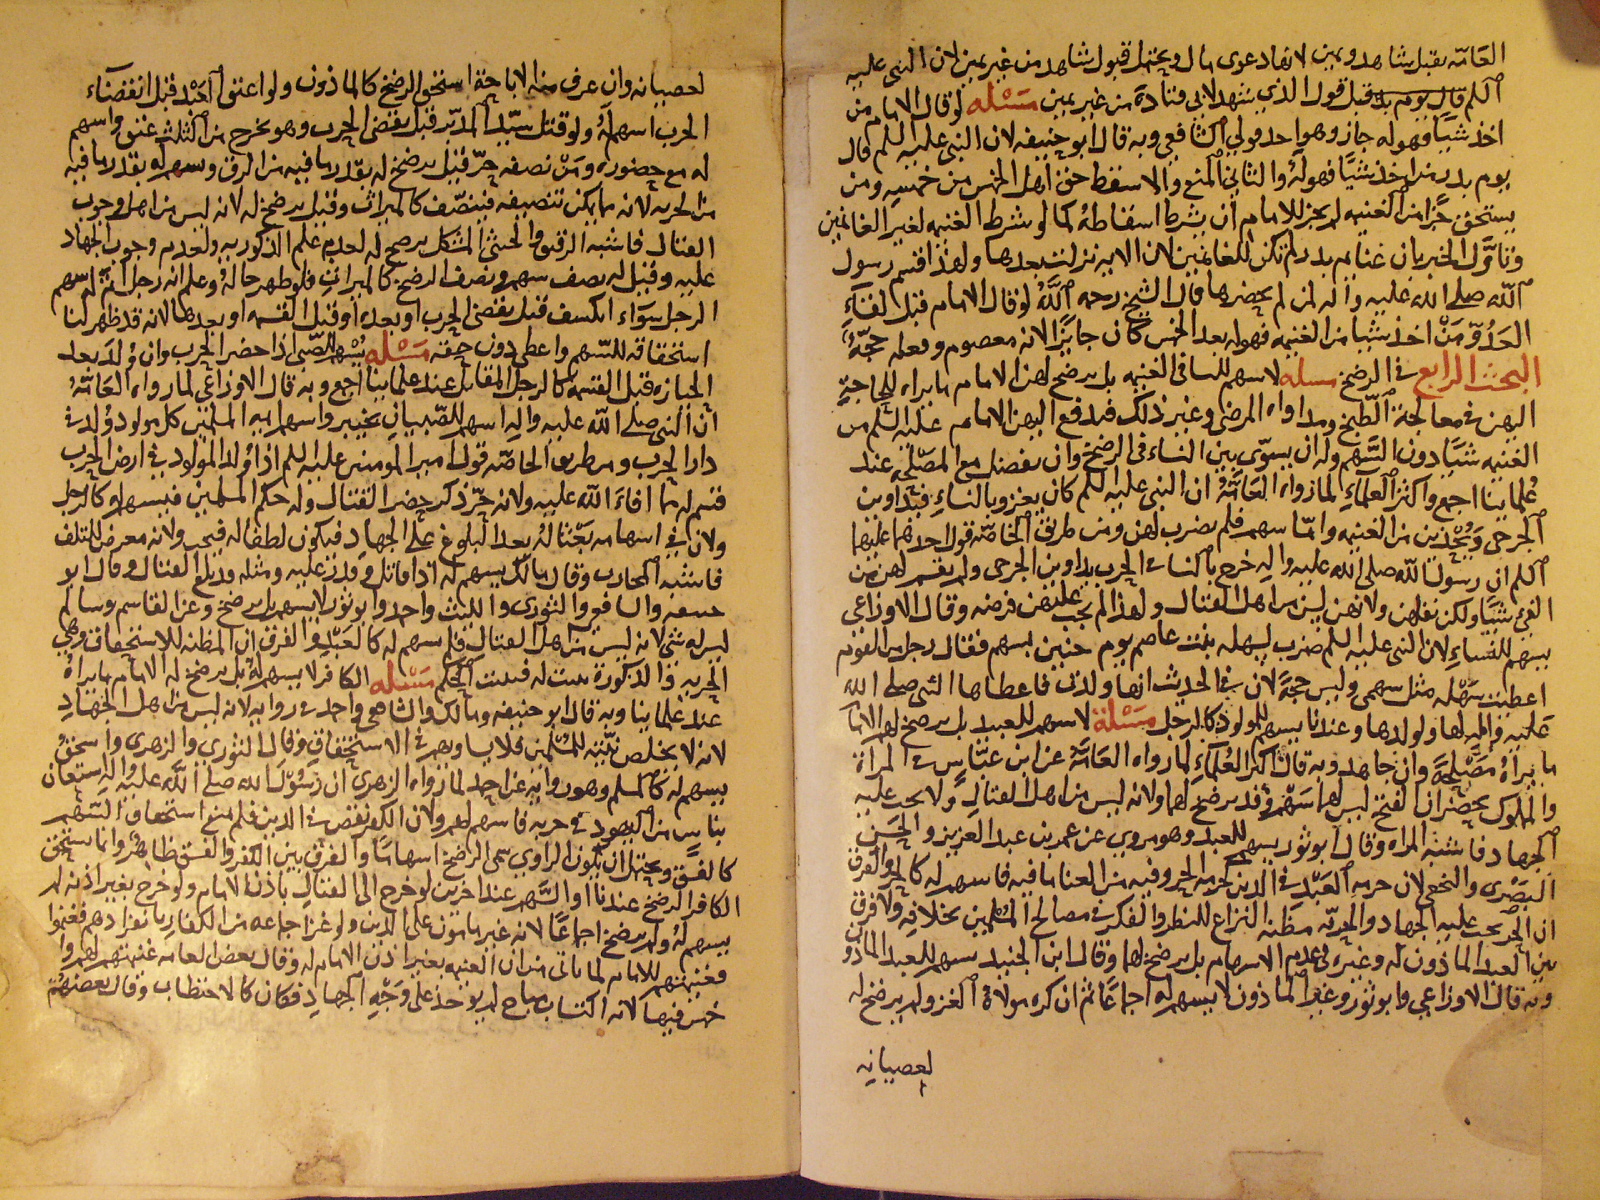 العامة يقبل شاهد ويمين لانها دعوى مال ويحتمل قبول شاهد من غير يمين لان النبي عليه
السلم قال يوم بدر قبل قول الذي شهد لابي قتادة من غير يمين مسئله لو قال الامام من
اخذ شيئا فهو له جاز وهو احد قولي الشافعي وبه قال ابو حنيفه لان النبي عليه السلم قال
يوم بدر من اخذ شيئا فهو له والثاني المنع والا سقط حق اهل الخمس من خمسه ومن
يستحق جزا من الغنيمه لم يجز للامام ان يشرط اسقاطه كما لو شرط الغنيمه لغير الغانمين
وتاول الخبر بان غنايم بدر لم تكن للغانمين لان الايه نزلت بعدها ولهذا قسم رسول
الله صلى الله عليه واله لمن لم يحضرها قال الشيخ رحمه الله لو قال الامام قبل لقاء
العدو من اخذ شيئا من الغنيمه فهو له بعد الخمس كان جايزا لانه معصوم وفعله حجة
البحث الرابع في الرضخ مسله لا سهم للنسا في الغنيمه بل يرضخ لهن الامام ما يراه للحاجة
اليهن في معالجة الطبخ ومداواه المرضى وغير ذلك فيدفع اليهن الامام عليه السلم من
الغنيمه شيئا دون السهم وله ان يسوي بين النساء في الرضخ وان يفضل مع المصلحه عند
علماينا اجمع واكثر العلماء لما رواه العامة ان النبي عليه السلم كان يغزو بالنساء فيداوين
الجرحى ويحذين من الغنيمه واما سهم فلم يضرب لهن ومن طريق الخاصه قول احدهما عليهما
السلم ان رسول الله صلى الله عليه واله خرج بالنساء في الحرب يداوين الجرحى ولم يقسم لهن من
الفئ شيئا ولكن نفلهن ولانهن ليس من اهل القتال ولهذا لم يجب عليهن فرضه وقال الاوزاعي
يسهم للنساء لان النبي عليه السلم ضرب لسهله بنت عاصم يوم حنين بسهم فقال رجل من القوم
اعطيت سهله مثل سهمي وليس حجة لان في الحديث انها ولدت فاعطاها النبي صلى الله
عليه واله لها ولولدها وعندنا يسهم للمولود كالرجل مسئلة لا سهم للعبيد بل يرضخ لهم الامام
ما يراه مصلحة وان جاهد وبه قال اكثر العلماء لما رواه العامة عن ابن عباس في المراة
والمملوك يحضران الفتح ليس لهما سهم وقد يرضخ لهما ولانه ليس من اهل القتال ولا يجب عليه
الجهاد فاشبه المراه وقال ابو ثور يسهم للعبد وهو مروي عن عمر بن عبد العزيز والحسن
البصري والنخعي لان حرمه العبد في الدين كحرمه الحر وفيه من العنا ما فيه فاسهم له كالحر والفرق
ان الحر يجب عليه الجهاد والحرية مظنه النزاع للنظر والفكر في مصالح المسلمين بخلافه ولا فرق
بين العبد الماذون له وغيره في عدم الاسهام بل يرضخ لهما وقال ابن الجنيد يسهم للعبد الماذون
وبه قال الاوزاعي وابو ثور وغير الماذون لا يسهم له اجماعا ثم ان كره مولاه الغزو لم يرضخ له
لعصيانه
لعصيانه وان عرف منه الاباحة استحق الرضخ كالماذون ولو اعتق العبد قبل انقضاء
الحرب اسهم له ولو قتل سيد المدبر قبل تقضي الحرب وهو يخرج من الثلث عتق واسهم
له مع حضوره ومن نصفه حر قيل يرضخ له بقدر ما فيه من الرق ويسهم له بقدر ما فيه
من الحريه لانه مما يمكن تنصيفه فينصف كالميراث وقيل يرضخ له لانه ليس من اهل وجوب
القتال فاشبه الرقيق والخنثى المشكل يرضخ له لعدم علم الذكوريه ولعدم وجوب الجهاد
عليه وقيل له نصف سهم ونصف الرضخ كالميراث فلو ظهر حاله وعلم انه رجل اتم له سهم
الرجل سواء انكشف قبل تقضي الحرب او بعده او قبل القسمه او بعدها لانه قد ظهر لنا
استحقاقه للسهم واعطي دون حقه مسئله يسهم للصبي اذا حضر الحرب وان ولد بعد
الحيازه قبل القسمة كالرجل المقاتل عند علماينا اجمع وبه قال الاوزاعي لما رواه العامة
ان النبي صلى الله عليه واله اسهم للصبيان بخيبر واسهم ايمه المسلمين كل مولود ولد في
دار الحرب ومن طريق الخاصه قول امير المومنين عليه السلم اذا ولد المولود في ارض الحرب
قسم له مما افاء الله عليه ولانه حر ذكر حضر القتال وله حكم المسلمين فيسهم له كالرجل
ولان في اسهامه بعثا له بعد البلوغ على الجهاد فيكون لطفا له فيجب ولانه معرض للتلف
فاشبه المحارب وقال مالك يسهم له اذا قاتل وقدر عليه ومثله قد بلغ القتال وقال ابو
حنيفه والشافعي والثوري والليث واحمد وابو ثور لا يسهم بل يرضخ وعن القاسم وسالم
ليس له شئ لانه ليس من اهل القتال فلم يسهم له كالعبد والفرق ان المظنه للاستحقاق وهي
الحريه والذكورة ثبتت له فيثبت الحكم مسئله الكافر لا يسهم له بل يرضخ له الامام ما يراه
عند علماينا وبه قال ابو حنيفه ومالك والشافعي واحمد في روايه لانه ليس من اهل الجهاد
لانه لا يخلص نيته للمسلمين فلا يساويهم في الاستحقاق وقال الثوري والزهري واسحق
يسهم له كالمسلم وهو روايه عن احمد لما رواه الزهري ان رسول الله صلى الله عليه واله استعان
بناس من اليهود في حربه فاسهم لهم ولان الكفر نقص في الدين فلم يمنع استحقاق السهم
كالفسق ويحتمل ان يكون الراوي سمى الرضخ اسهاما والفرق بين الكفر والفسق ظاهر وانما يستحق
الكافر الرضخ عندنا او السهم عند اخرين لو خرج الى القتال باذن الامام ولو خرج بغير اذنه لم
يسهم له ولم يرضخ اجماعا لانه غير مامون على الدين ولو غزا جماعه من الكفار بانفرادهم فغنموا
فغنيمتهم للامام لما ياتي من ان الغنيمه بغير اذن الامام له وقال بعض العامه غنيمتهم لهم ولا
خمس فيها لانه اكتساب مباح لم يوخذ على وجه الجهاد فكان كالاحتطاب وقال بعضهم